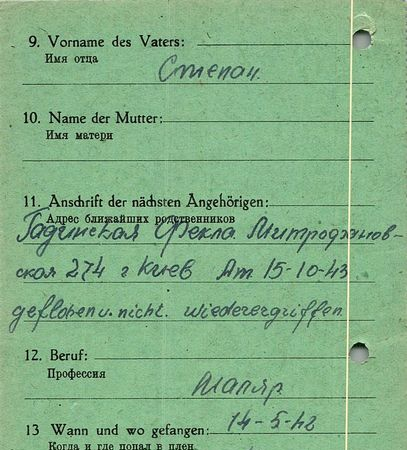 9. Vorname des Vaters:
Имя отца
Степан.
10. Name der Mutter:
Имя матери
11. Anschrift der nächsten Angehörigen:
Адрес ближайших родственников
Гадинская Фекла Митрофанов-
ская 274 г Киев Am 15-10-43
geflohen u. nicht. wiederergriffen
12. Beruf:
Профессия
Маляр.
13 Wann und wo gefangen: 14-5-42
Когда и где попал в плен